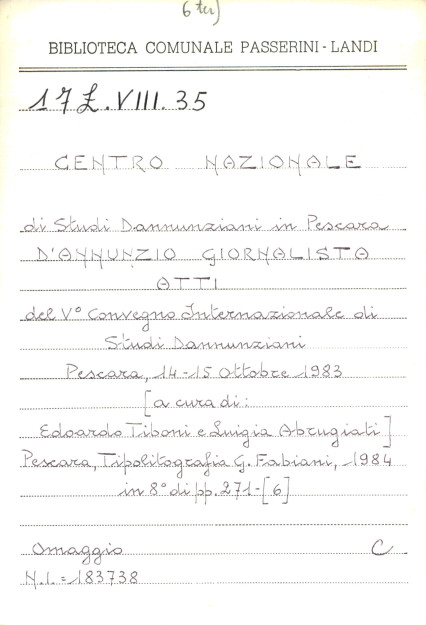 6 ter)
BIBLIOTECA COMUNALE PASSERINI - LANDI
17 L. VIII. 35
CENTRO NAZIONALE
di Studi Dannunziani in Pescara
D'ANNUNZIO GIORNALISTA
ATTI
del V° Convegno Internazionale di
Studi Dannunziani
Pescara, 14-15 Ottobre 1983
[a cura di:
Edoardo Tiboni e Luigia Abrugiati]
Pescara, Tipolitografia G. Fabiani, 1984
in 8° di pp. 271-[6]
Omaggio C
N.I. = 183738